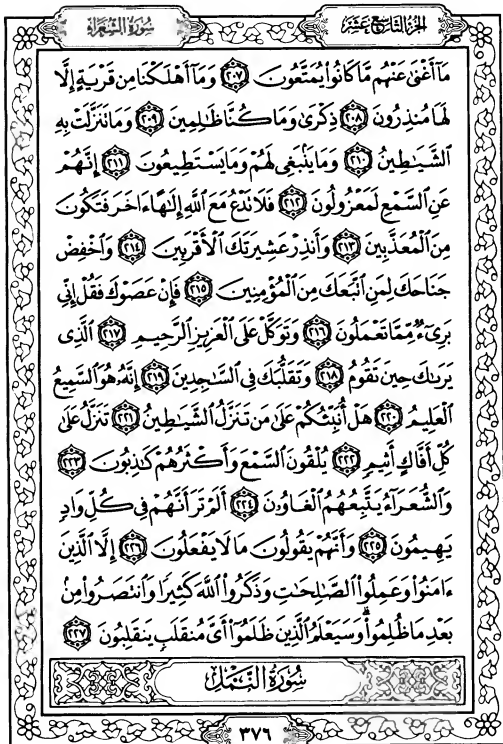 الجزء التاسع عشر
سورة الشعراء
مَآ أَغْنَىٰ عَنْهُم مَّا كَانُوا۟ يُمَتَّعُونَ ٢٠٧ وَمَآ أَهْلَكْنَا مِن قَرْيَةٍ إِلَّا
لَهَا مُنذِرُونَ ٢٠٨ ذِكْرَىٰ وَمَا كُنَّا ظَـٰلِمِينَ ٢٠٩ وَمَا تَنَزَّلَتْ بِهِ
ٱلشَّيَـٰطِينُ ٢١٠ وَمَا يَنۢبَغِى لَهُمْ وَمَا يَسْتَطِيعُونَ ٢١١ إِنَّهُمْ
عَنِ ٱلسَّمْعِ لَمَعْزُولُونَ ٢١٢ فَلَا تَدْعُ مَعَ ٱللَّهِ إِلَـٰهًا ءَاخَرَ فَتَكُونَ
مِنَ ٱلْمُعَذَّبِينَ ٢١٣ وَأَنذِرْ عَشِيرَتَكَ ٱلْأَقْرَبِينَ ٢١٤ وَٱخْفِضْ
جَنَاحَكَ لِمَنِ ٱتَّبَعَكَ مِنَ ٱلْمُؤْمِنِينَ ٢١٥ فَإِنْ عَصَوْكَ فَقُلْ إِنِّى
بَرِىٓءٌ مِّمَّا تَعْمَلُونَ ٢١٦ وَتَوَكَّلْ عَلَى ٱلْعَزِيزِ ٱلرَّحِيمِ ٢١٧ ٱلَّذِى
يَرَىٰكَ حِينَ تَقُومُ ٢١٨ وَتَقَلُّبَكَ فِى ٱلسَّـٰجِدِينَ ٢١٩ إِنَّهُۥ هُوَ ٱلسَّمِيعُ
ٱلْعَلِيمُ ٢٢٠ هَلْ أُنَبِّئُكُمْ عَلَىٰ مَن تَنَزَّلُ ٱلشَّيَـٰطِينُ ٢٢١ تَنَزَّلُ عَلَىٰ
كُلِّ أَفَّاكٍ أَثِيمٍ ٢٢٢ يُلْقُونَ ٱلسَّمْعَ وَأَكْثَرُهُمْ كَـٰذِبُونَ ٢٢٣
وَٱلشُّعَرَآءُ يَتَّبِعُهُمُ ٱلْغَاوُۥنَ ٢٢٤ أَلَمْ تَرَ أَنَّهُمْ فِى كُلِّ وَادٍ
يَهِيمُونَ ٢٢٥ وَأَنَّهُمْ يَقُولُونَ مَا لَا يَفْعَلُونَ ٢٢٦ إِلَّا ٱلَّذِينَ
ءَامَنُوا۟ وَعَمِلُوا۟ ٱلصَّـٰلِحَـٰتِ وَذَكَرُوا۟ ٱللَّهَ كَثِيرًا وَٱنتَصَرُوا۟ مِنۢ
بَعْدِ مَا ظُلِمُوا۟ ۗ وَسَيَعْلَمُ ٱلَّذِينَ ظَلَمُوٓا۟ أَىَّ مُنقَلَبٍ يَنقَلِبُونَ ٢٢٧
سُورَةُ النَّمْلِ
٣٧٦